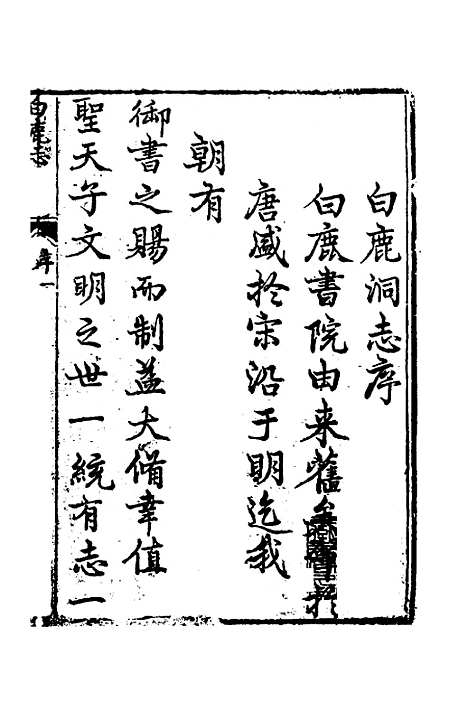 白鹿洞志序
白鹿書院由來舊矣於
唐盛於宋沿于明迄我
朝有
御書之賜而制益大備幸值
聖天子文明之世一統有志一
白鹿志
序一